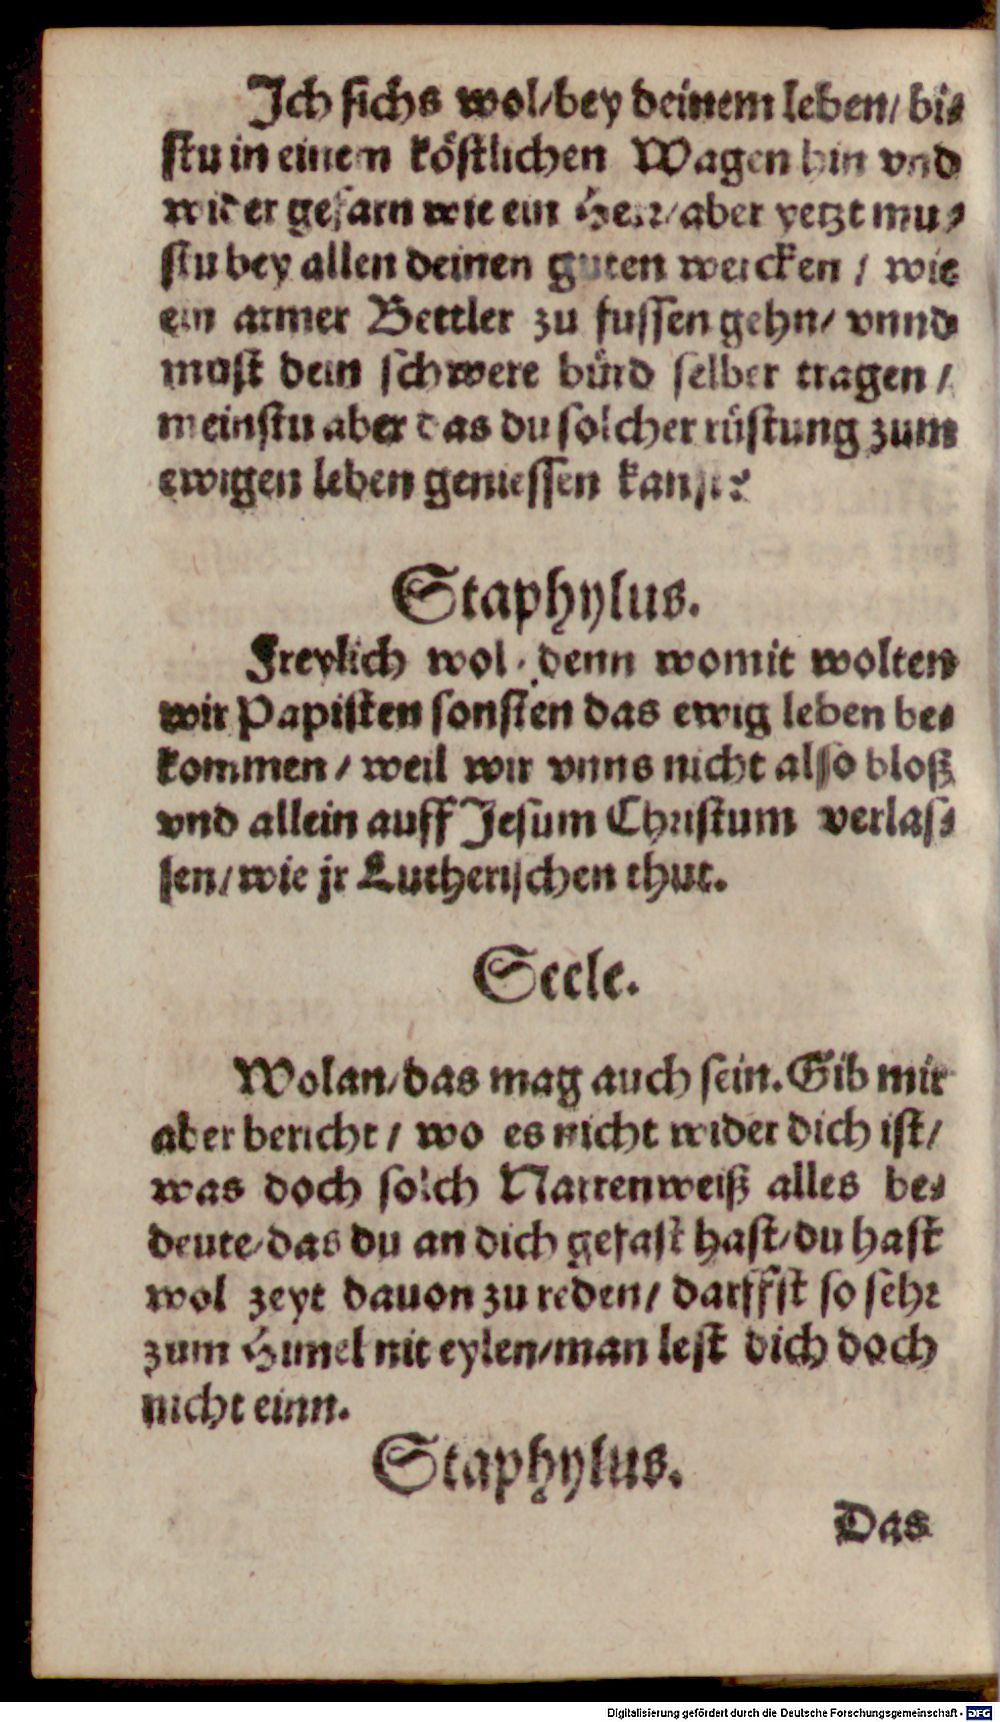 Ich sichs wol/bey deinem leben/ bi⸗
stu in einem köstlichen Wagen hin vnd
wider gefarn wie ein Herr/aber yetzt mu⸗
stu bey allen deinen guten wercken / wie
ein armer Bettler zu fussen gehn/ vnnd
must dein schwere bürd selber tragen /
meinstu aber das du solcher rüstung zum
ewigen leben geniessen kanst?
Staphylus.
Freylich wol / denn womit wolten
wir Papisten sonsten das ewig leben be⸗
kommen / weil wir vnns nicht also bloß
vnd allein auff Jesum Christum verlas⸗
sen/wie jr Lutherischen thut.
Seele.
Wolan/das mag auch sein. Gib mir
aber bericht / wo es nicht wider dich ist/
was doch solch Narrenweiß alles be⸗
deute/das du an dich gefast hast/du hast
wol zeyt dauon zu reden/ darffst so sehr
zum Himel nit eylen/man lest dich doch
nicht einn.
Staphylus.
Das
Digitalisierung gefördert durch die Deutsche Forschungsgemeinschaft - DFG